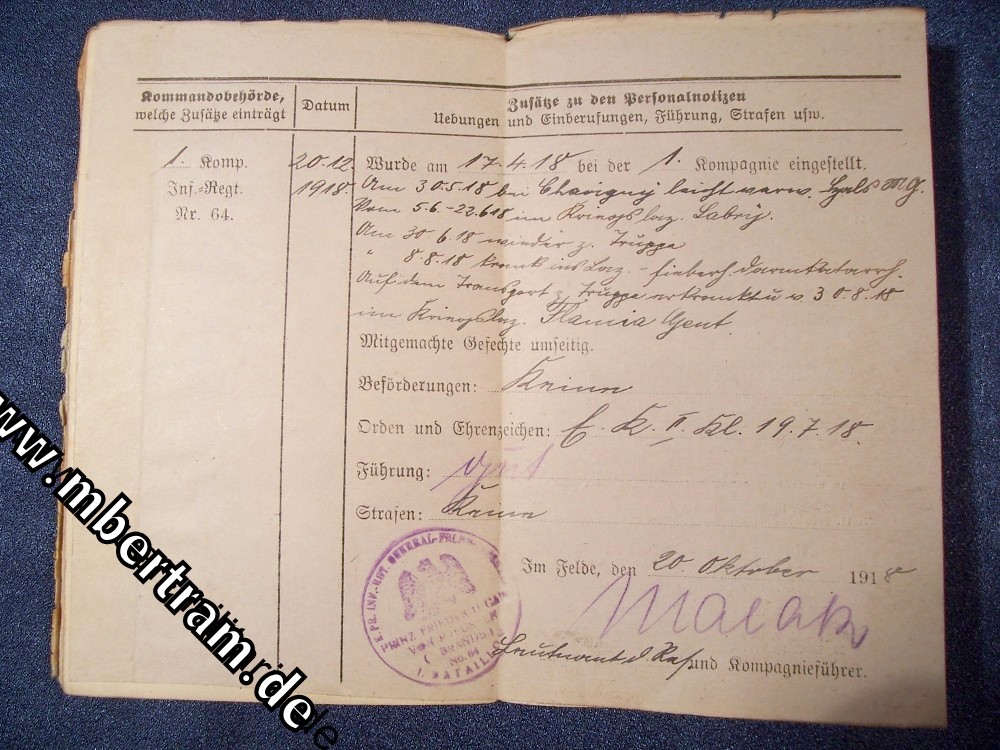 Kommandobehörde,
welche Zusätze einträgt
Datum
Zusätze zu den Personalnotizen
Uebungen und Einberufungen, Führung, Strafen usw.
1. Komp.
Inf.-Regt.
Nr. 64.
20.12.
1918.
Wurde am 17.4.18 bei der 1. Kompagnie eingestellt.
Am 30.5.18 bei Chavigny leicht verw. Hals M.G.
Vom 5.6.-22.6.18 im Kriegslaz. Labry.
Am 30.6.18 wieder z. Truppe
" 8.8.18 krank ins Laz. - fieberh. Darmkatarrh.
Auf dem Transport z. Truppe erkrankt u. v. 30.8.18
im Kriegslaz. Gent
Mitgemachte Gefechte umseitig.
Beförderungen: Keine
Orden und Ehrenzeichen: E. K. II. Kl. 19.7.18.
Führung: gut
Strafen: Keine
Im Felde, den 20 Oktober 1918
Leutnant d. Res. und Kompagnieführer.
K. PR. INF.-RGT. GENERAL-FELD
PRINZ FRIEDRICH CAR
VON PREUSSEN
BRANDBG.
No. 64
I. BATAILLON
www.mbertram.de